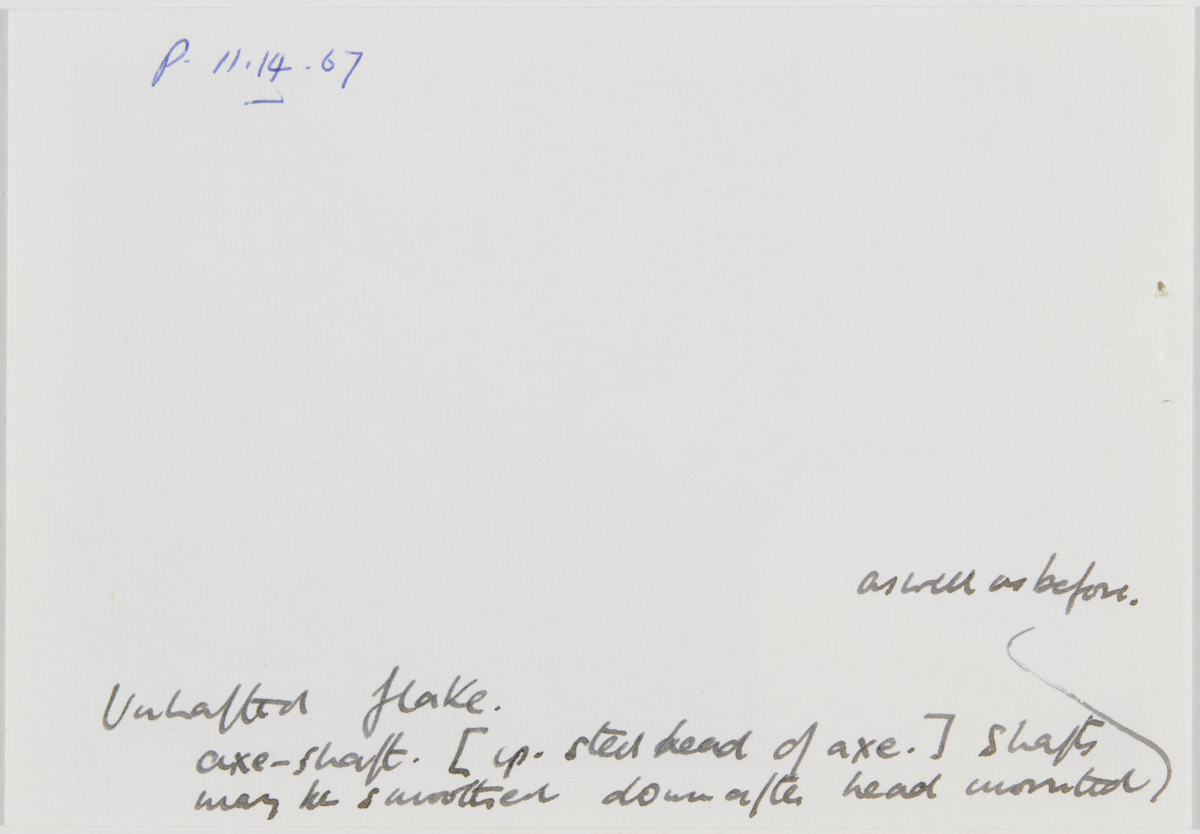 P. 11.14.67
as well as before.
Unhafted flake.
axe-shaft. [ steel head of axe.] Shafts
may be smoothed down after head mounted